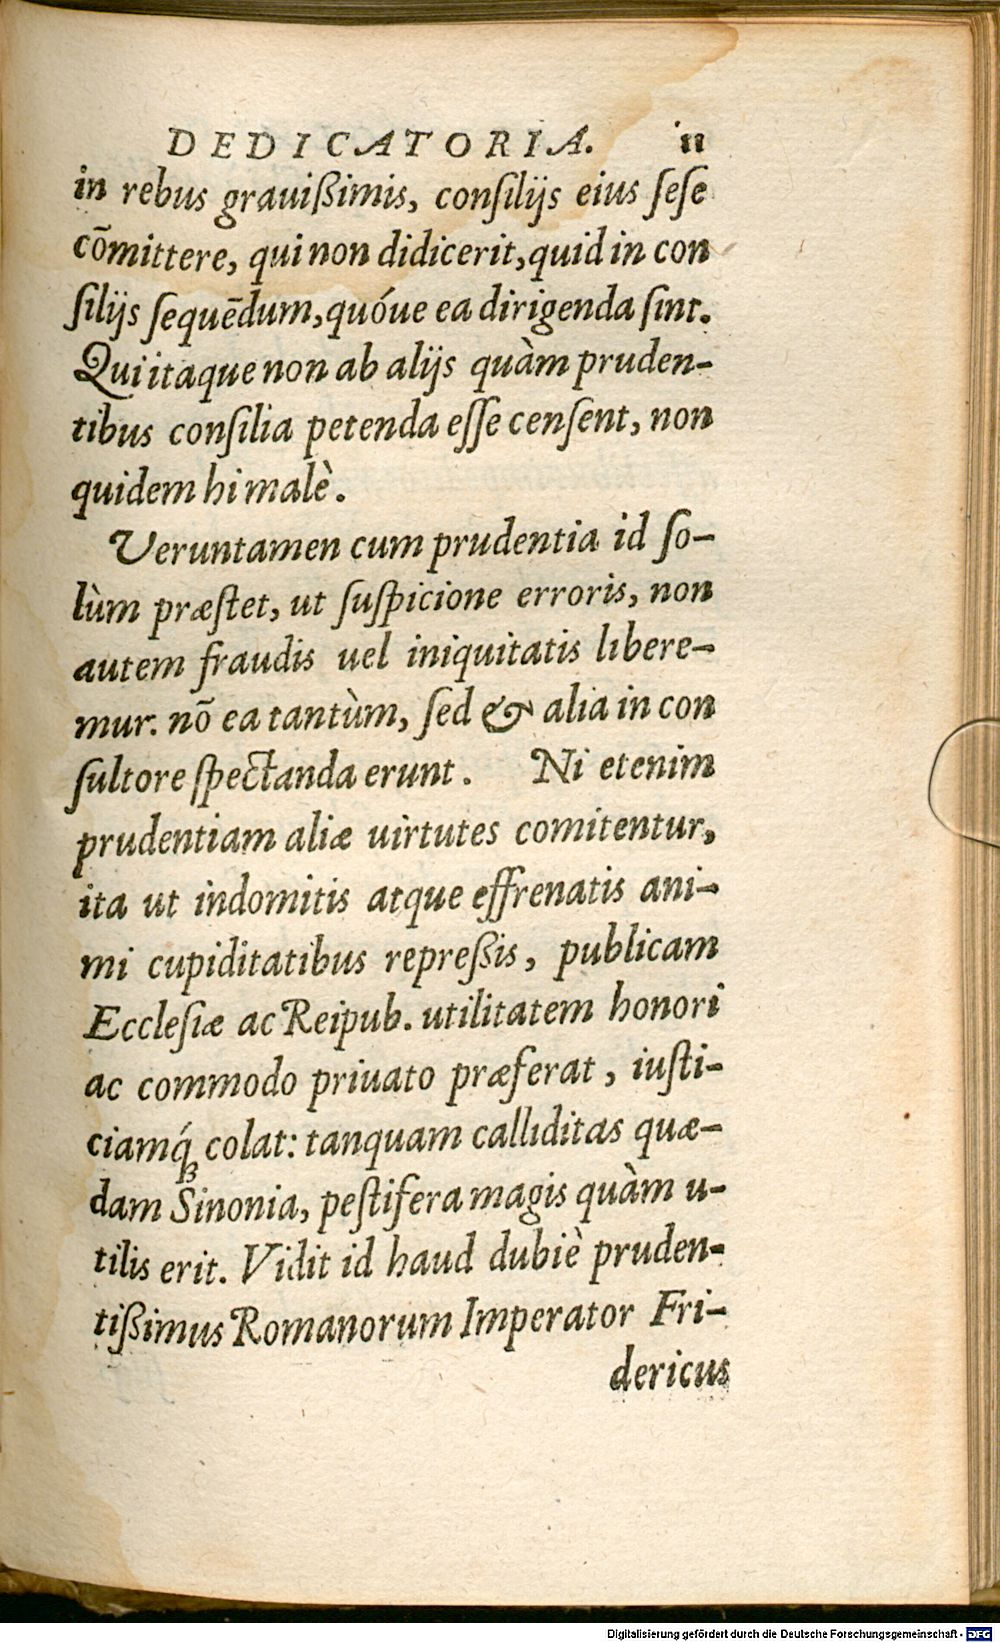 DEDICATORIA. 11
in rebus grauißimis, conſilijs eius ſeſe
cõmittere, qui non didicerit, quid in con
ſilijs ſequẽdum, quóue ea dirigenda ſint.
Qui itaque non ab alijs quàm pruden-
tibus conſilia petenda eſſe cenſent, non
quidem hi malè.
Veruntamen cum prudentia id ſo-
lùm præſtet, ut ſuſpicione erroris, non
autem fraudis uel iniquitatis libere-
mur. nõ ea tantùm, ſed & alia in con
ſultore ſpectanda erunt. Ni etenim
prudentiam aliæ uirtutes comitentur,
ita ut indomitis atque effrenatis ani-
mi cupiditatibus repreßis, publicam
Eccleſiæ ac Reipub. utilitatem honori
ac commodo priuato præferat, iuſti-
ciamq́ꝫ colat: tanquam calliditas quæ-
dam Sinonia, peſtifera magis quàm u-
tilis erit. Vidit id haud dubiè pruden-
tißimus Romanorum Imperator Fri-
dericus
Digitalisierung gefördert durch die Deutsche Forschungsgemeinschaft - DFG